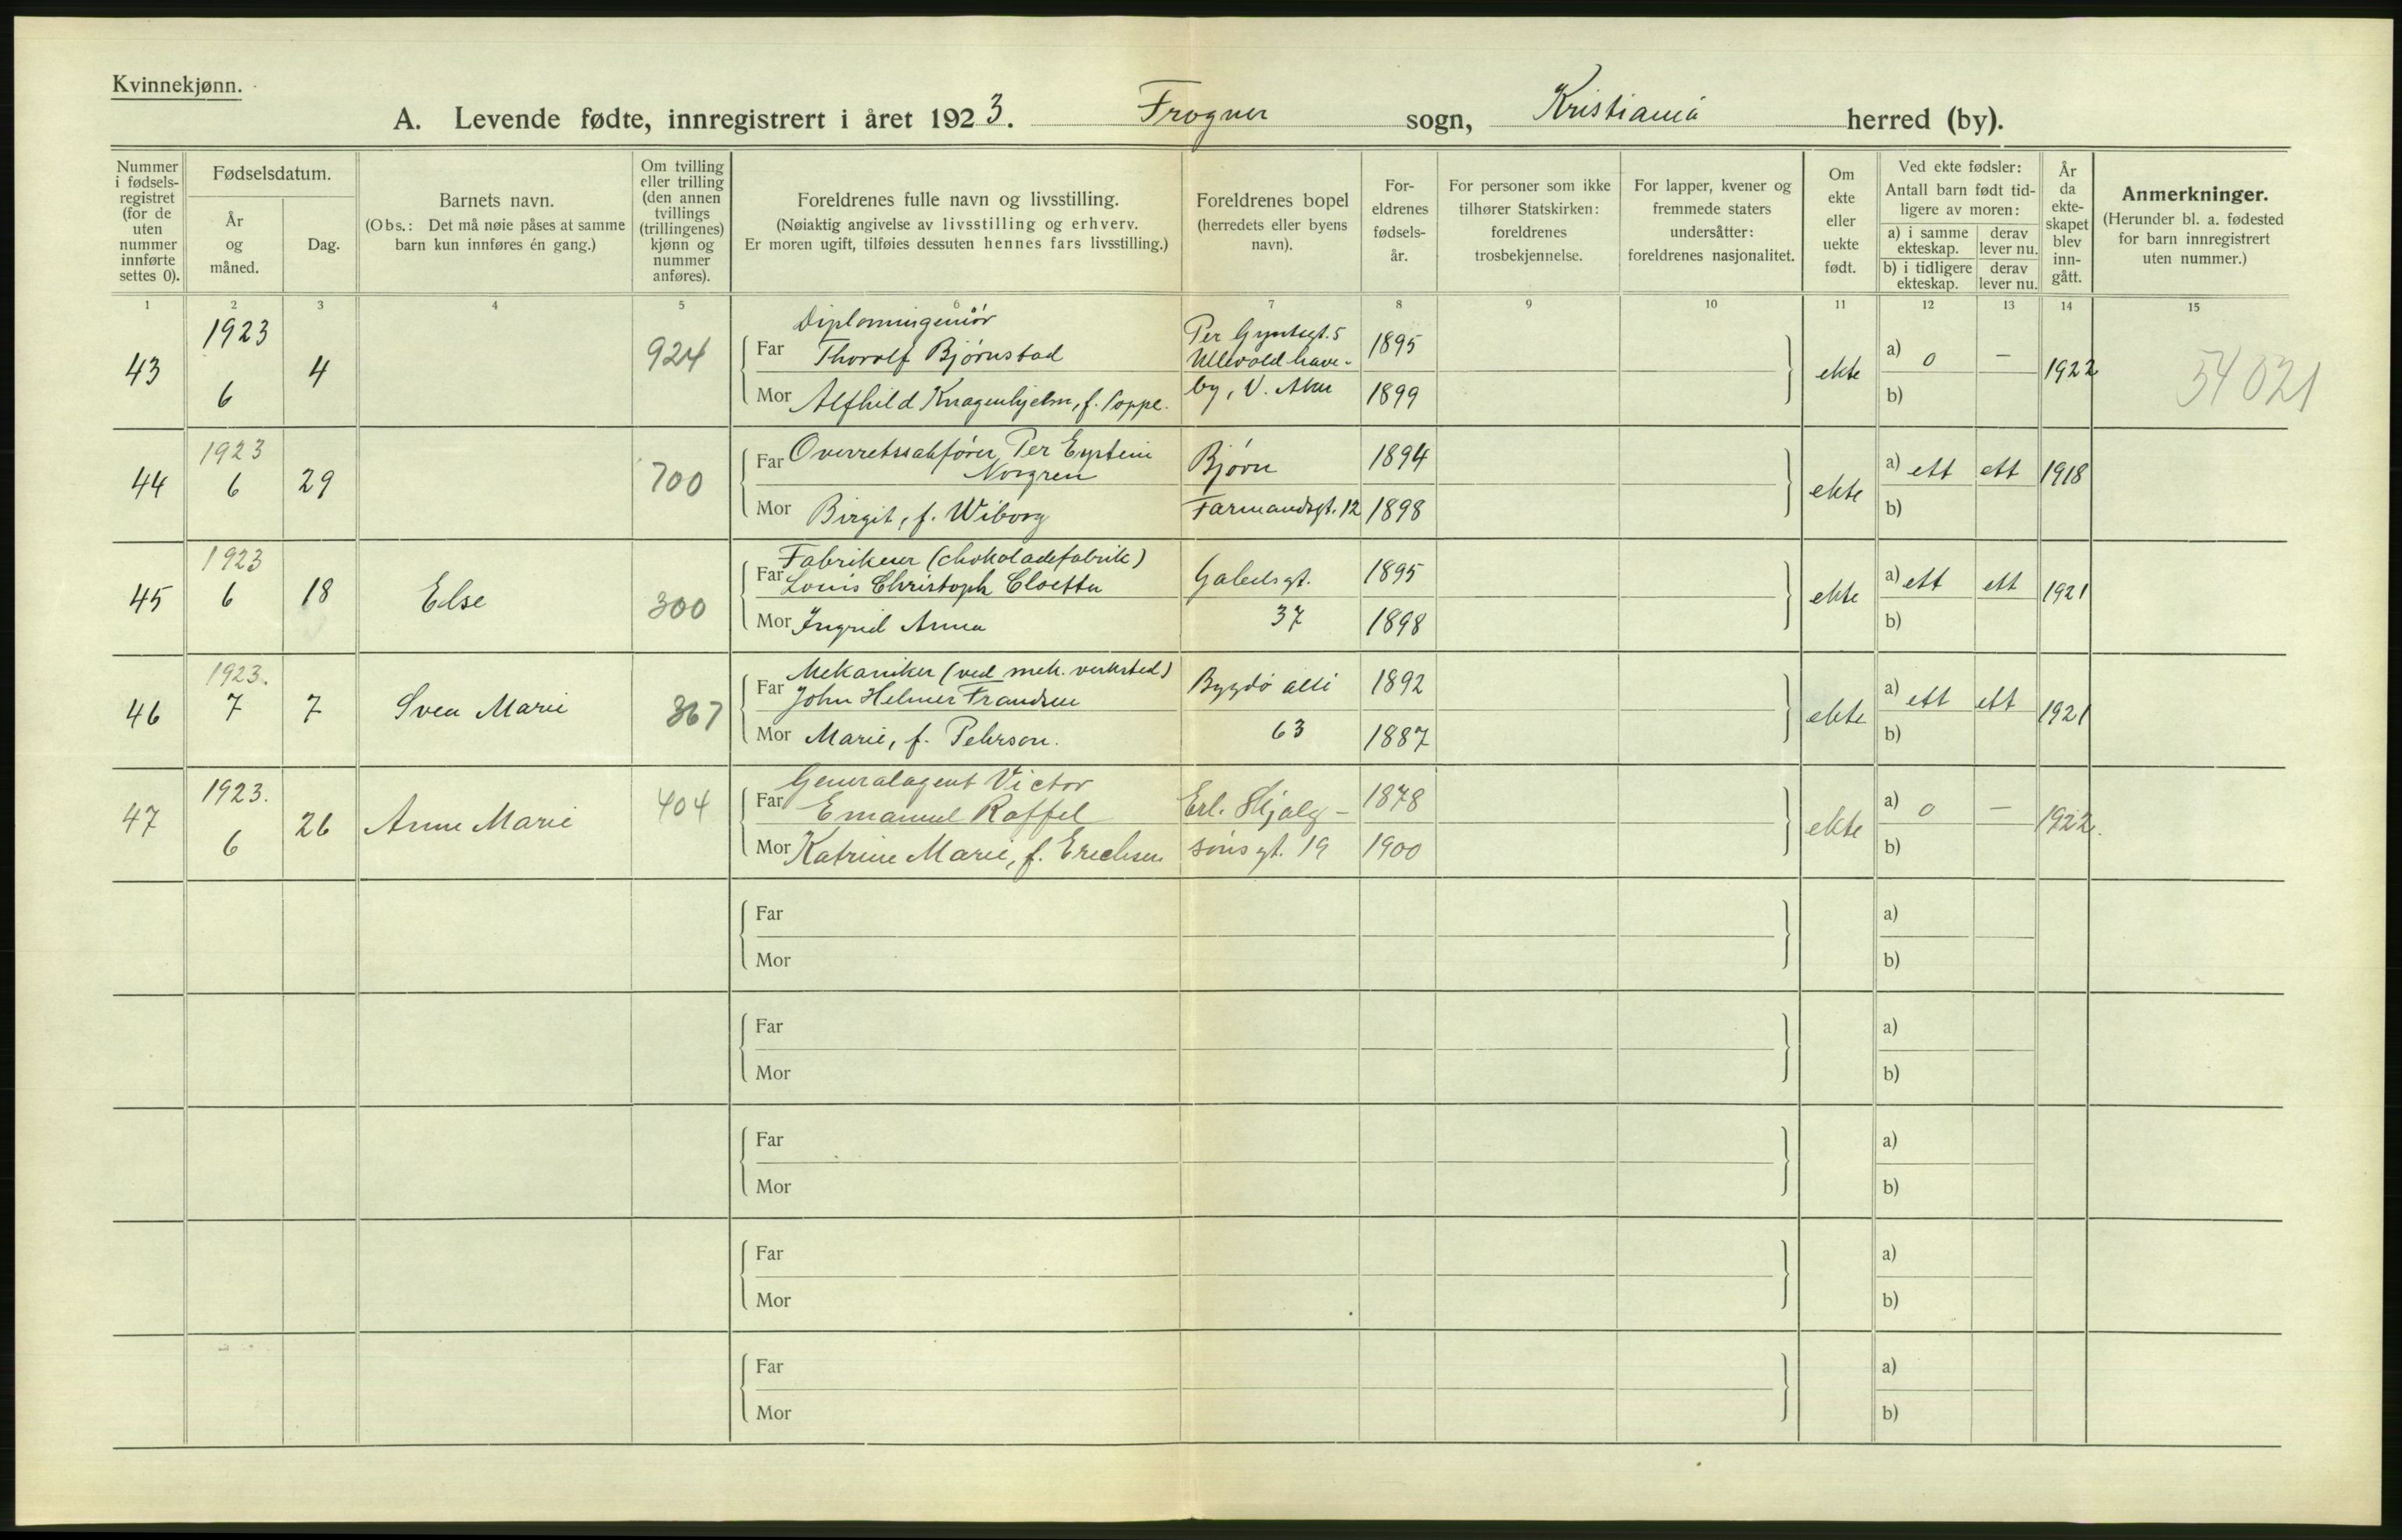 Kvinnekjønn.
A. Levende fødte, innregistrert i året 1923. Frogner sogn, Kristiania herred (by).
Nummer i fødsels-registret (for de uten nummer innførte settes 0).
Fødselsdatum.
År og måned.
Dag.
Barnets navn.
(Obs.: Det må nøie påses at samme barn kun innføres én gang.)
Om tvilling eller trilling (den annen tvillings (trillingenes) kjønn og nummer anføres).
Foreldrenes fulle navn og livsstilling.
(Nøiaktig angivelse av livsstilling og erhverv.
Er moren ugift, tilføies dessuten hennes fars livsstilling.)
Foreldrenes bopel
(herredets eller byens navn).
For-eldrenes fødsels-år.
For personer som ikke tilhører Statskirken: foreldrenes trosbekjennelse.
For lapper, kvener og fremmede staters undersåtter: foreldrenes nasjonalitet.
Om ekte eller uekte født.
Ved ekte fødsler:
Antall barn født tid-ligere av moren:
a) i samme ekteskap.
derav lever nu.
b) i tidligere ekteskap.
derav lever nu.
År da ekte-skapet blev inn-gått.
Anmerkninger.
(Herunder bl. a. fødested for barn innregistrert uten nummer.)
1 2 3 4 5 6 7 8 9 10 11 12 13 14 15
43 1923 6 4 924
Diplomingeniör
Far Thorolf Bjørnstad
Mor Alfhild Knagenhjelm, f. Poppe.
Per Gyntsgt. 5
Ullevold have-
by, V. Aker
1895
1899
ekte a) 0 — 1922 54021
b)
44 1923 6 29 700
Far Overretssakfører Per Eystein
Norgren
Mor Birgit, f. Wiborg
Bjørn
Farmandsgt. 12
1894
1898
ekte a) ett ett 1918
b)
45 1923 6 18 Else 300
Fabrikeier (chokoladefabrik)
Far Louis Christoph Cloetta
Mor Ingrid Anna
Gabelsgt.
37
1895
1898
ekte a) ett ett 1921
b)
46 1923. 7 7 Svea Marie 867
Mekaniker (ved mek. verksted)
Far John Helmer Frandsen
Mor Marie, f. Pehrson.
Bygdö allé
63
1892
1887
ekte a) ett ett 1921
b)
47 1923. 6 26 Anne Marie 404
Generalagent Victor
Far Emanuel Raffel
Mor Katrine Marie, f. Erichsen
Erl. Skjalg-
sönsgt. 19
1878
1900
ekte a) 0 — 1922.
b)
Far a)
Mor b)
Far a)
Mor b)
Far a)
Mor b)
Far a)
Mor b)
Far a)
Mor b)